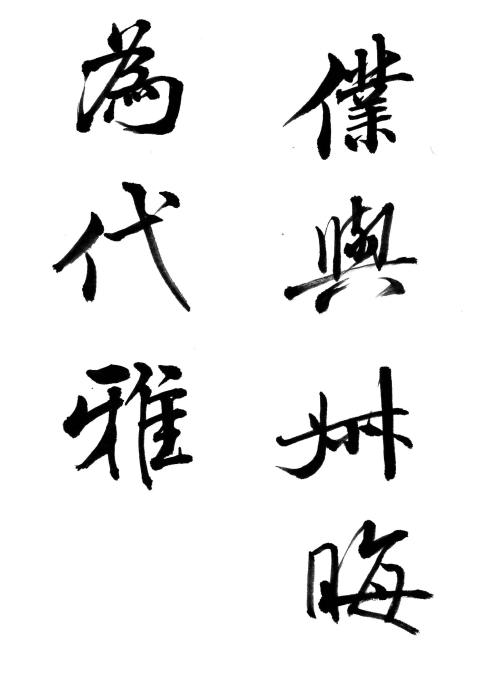 僕與艸晦
為代雅